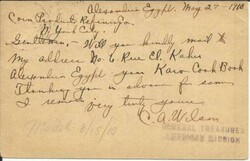 Alexandria Egypt. May 27-1910
Corn Products Refining Co.
N. York City.
Gentlemen, - Will you kindly mail to
my address No. 6 Rue El Kahir
Alexandria Egypt your Karo Cook Book
Thanking you in advance for same
I remain very truly yours
C. A. Wilson
GENERAL TREASURER
AMERICAN MISSION